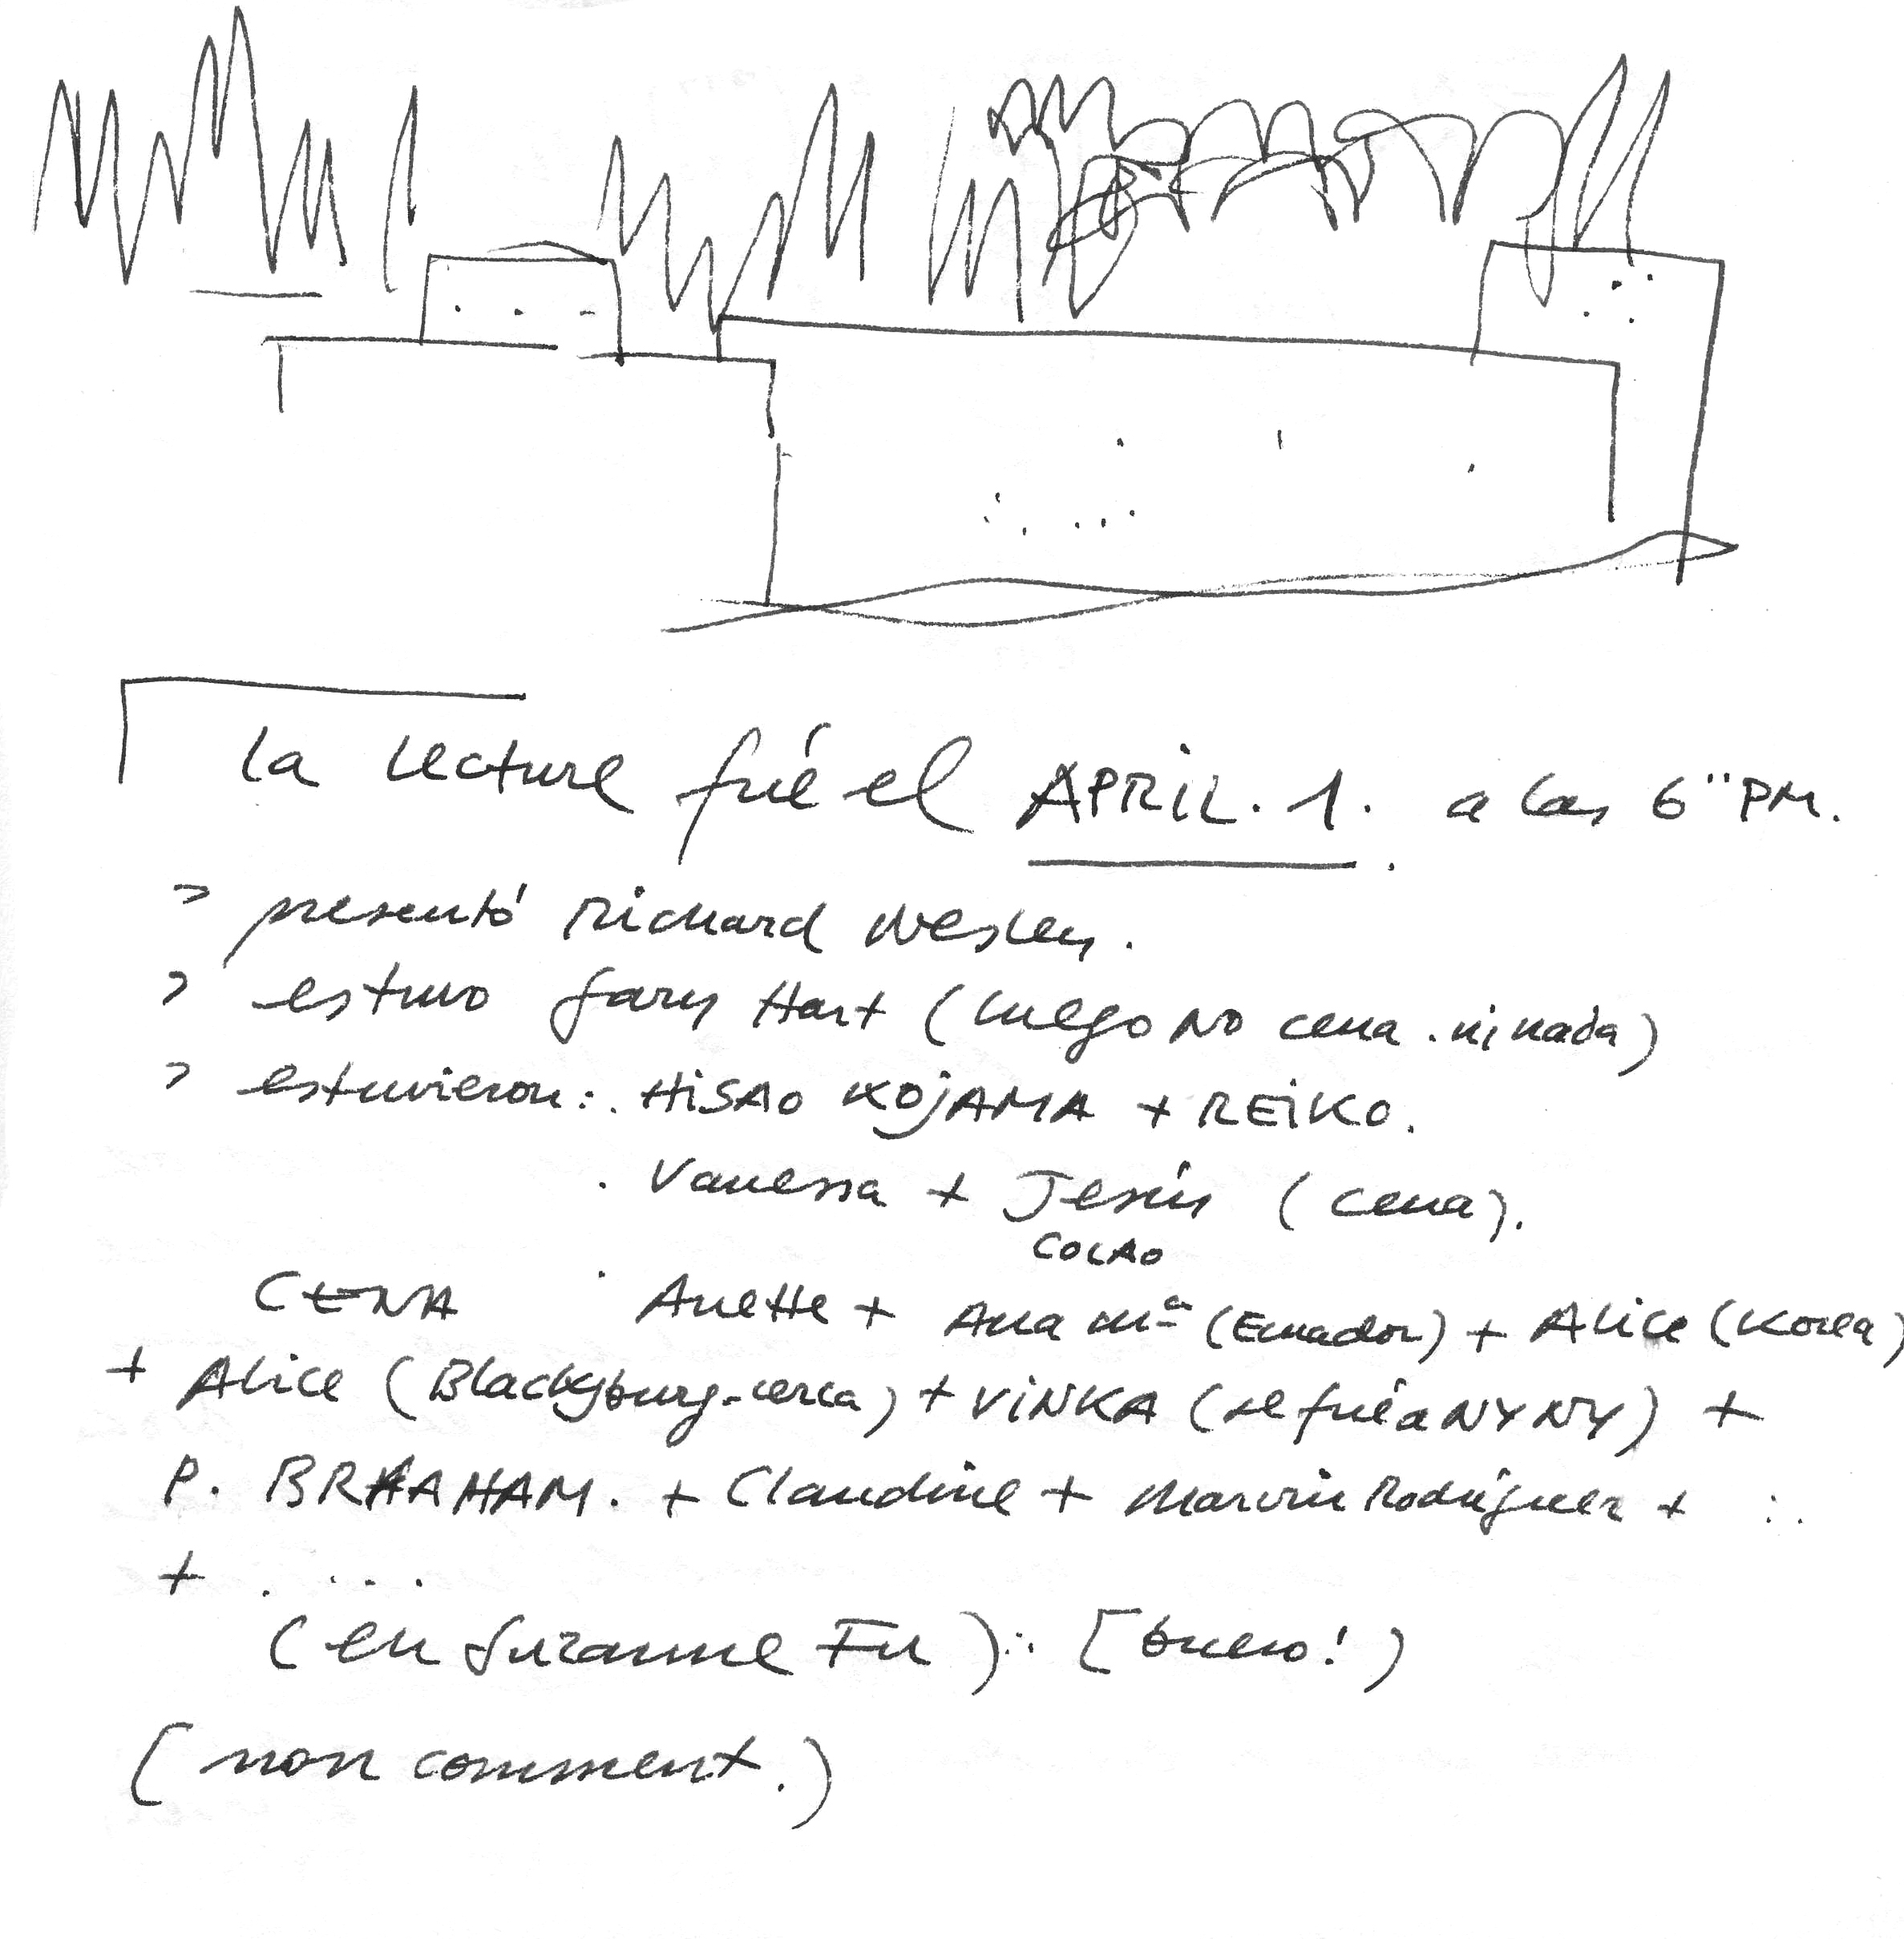 la lecture fué el APRIL. 1. a las 6" PM.
> presentó Richard Wesley.
> estuvo Gary Hart (luego NO cena . ni nada)
> estuvieron: . HiSAO KOjAMA + REiKO.
. Vanessa + Jesús (cena).
COLAO
CENA . Anette + Ana Mª (Ecuador) + Alice (Korea)
+ Alice (Blacksburg-cerca) + ViNKA (se fué a NY NY) +
P. BRAHAM. + Claudine + Marvin Rodríguez + :.
+ . . . . .
(en Suzanne Fu) :. [bueno!)
(non comment.)